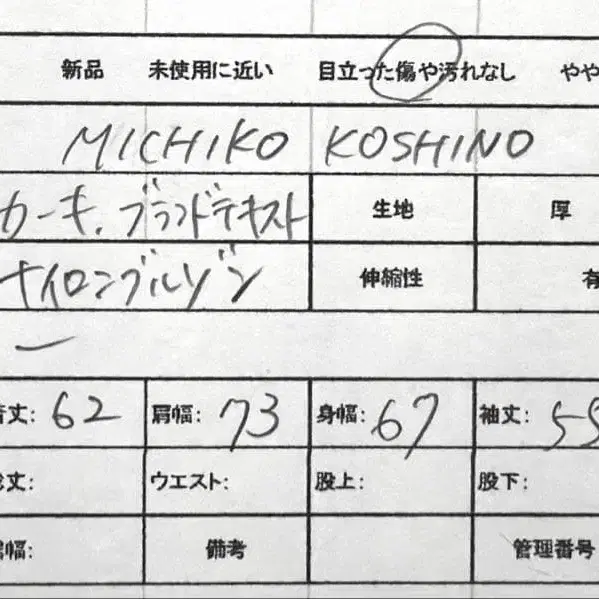 新品 未使用に近い 目立った傷や汚れなし やや
MICHIKO KOSHINO
カーキ、ブランドテキスト 生地 厚
ナイロンブルゾン 伸縮性 有
ー
着丈: 62 肩幅: 73 身幅: 67 袖丈: 55
総丈: ウエスト: 股上: 股下:
裾幅: 備考 管理番号